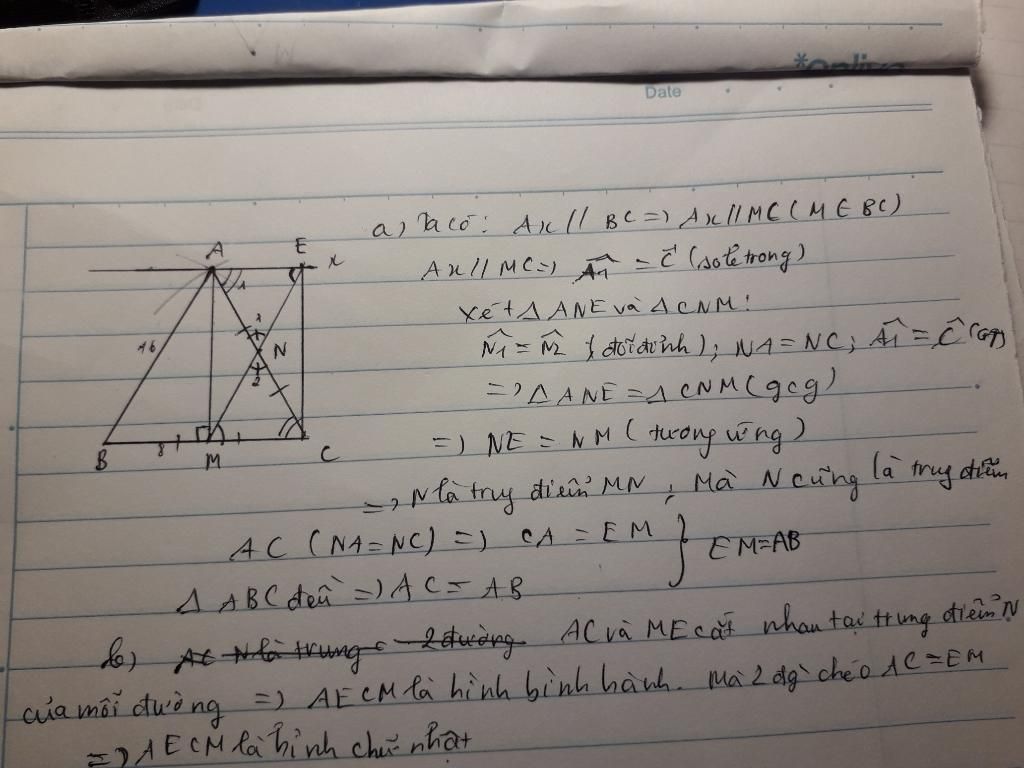 *online
Date
a) Ta có: Ax // BC => Ax // MC (M ∈ BC)
Ax // MC => Â1 = Ĉ (so le trong)
Xét Δ ANE và Δ CNM:
N̂1 = N̂2 (đối đỉnh); NA = NC; Â1 = Ĉ (cm)
=> Δ ANE = Δ CNM (gcg)
=> NE = NM (tương ứng)
=> N là trug điểm MN; Mà N cũng là trug điểm
AC (NA = NC) => CA = EM } EM = AB
Δ ABC đều => AC = AB
b) AC N là trung 2 đường AC và ME cắt nhau tại trung điểm N
của mỗi đường => AECM là hình bình hành. Mà 2 đg chéo AC = EM
=> AECM là hình chữ nhật
A E x
1
1
16 N
2
B 8 M C